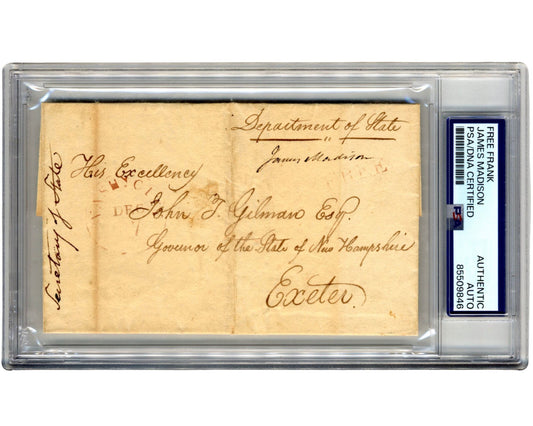 Department of State
James Madison
FREE
His Excellency
DE
John T. Gilman Esqr.
Governor of the State of New Hampshire
Exeter.
Secretary of State
FREE FRANK
JAMES MADISON
PSA/DNA CERTIFIED
PSA
AUTHENTIC
AUTO
85509846